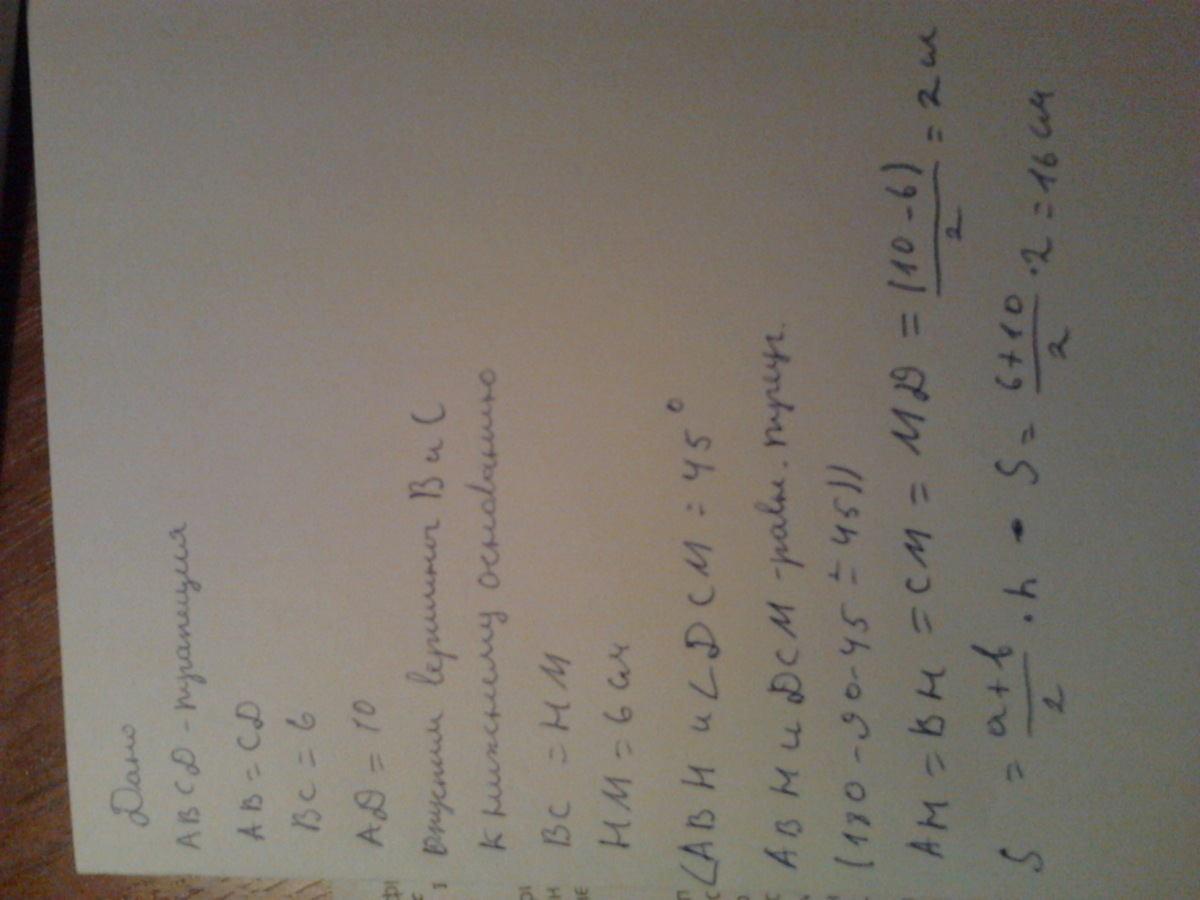 Дано
ABCD - трапеция
AB = CD
BC = 6
AD = 10
Опустим вершины B и C
к нижнему основанию
BC = HM
HM = 6 см
∠ABH и ∠DCM = 45°
ABH и DCM - равн. треуг.
(180-90-45=45))
AH = BH = CM = MD = (10-6)/2 = 2 см
S = a+b/2 · h - S = 6+10/2 · 2 = 16 см